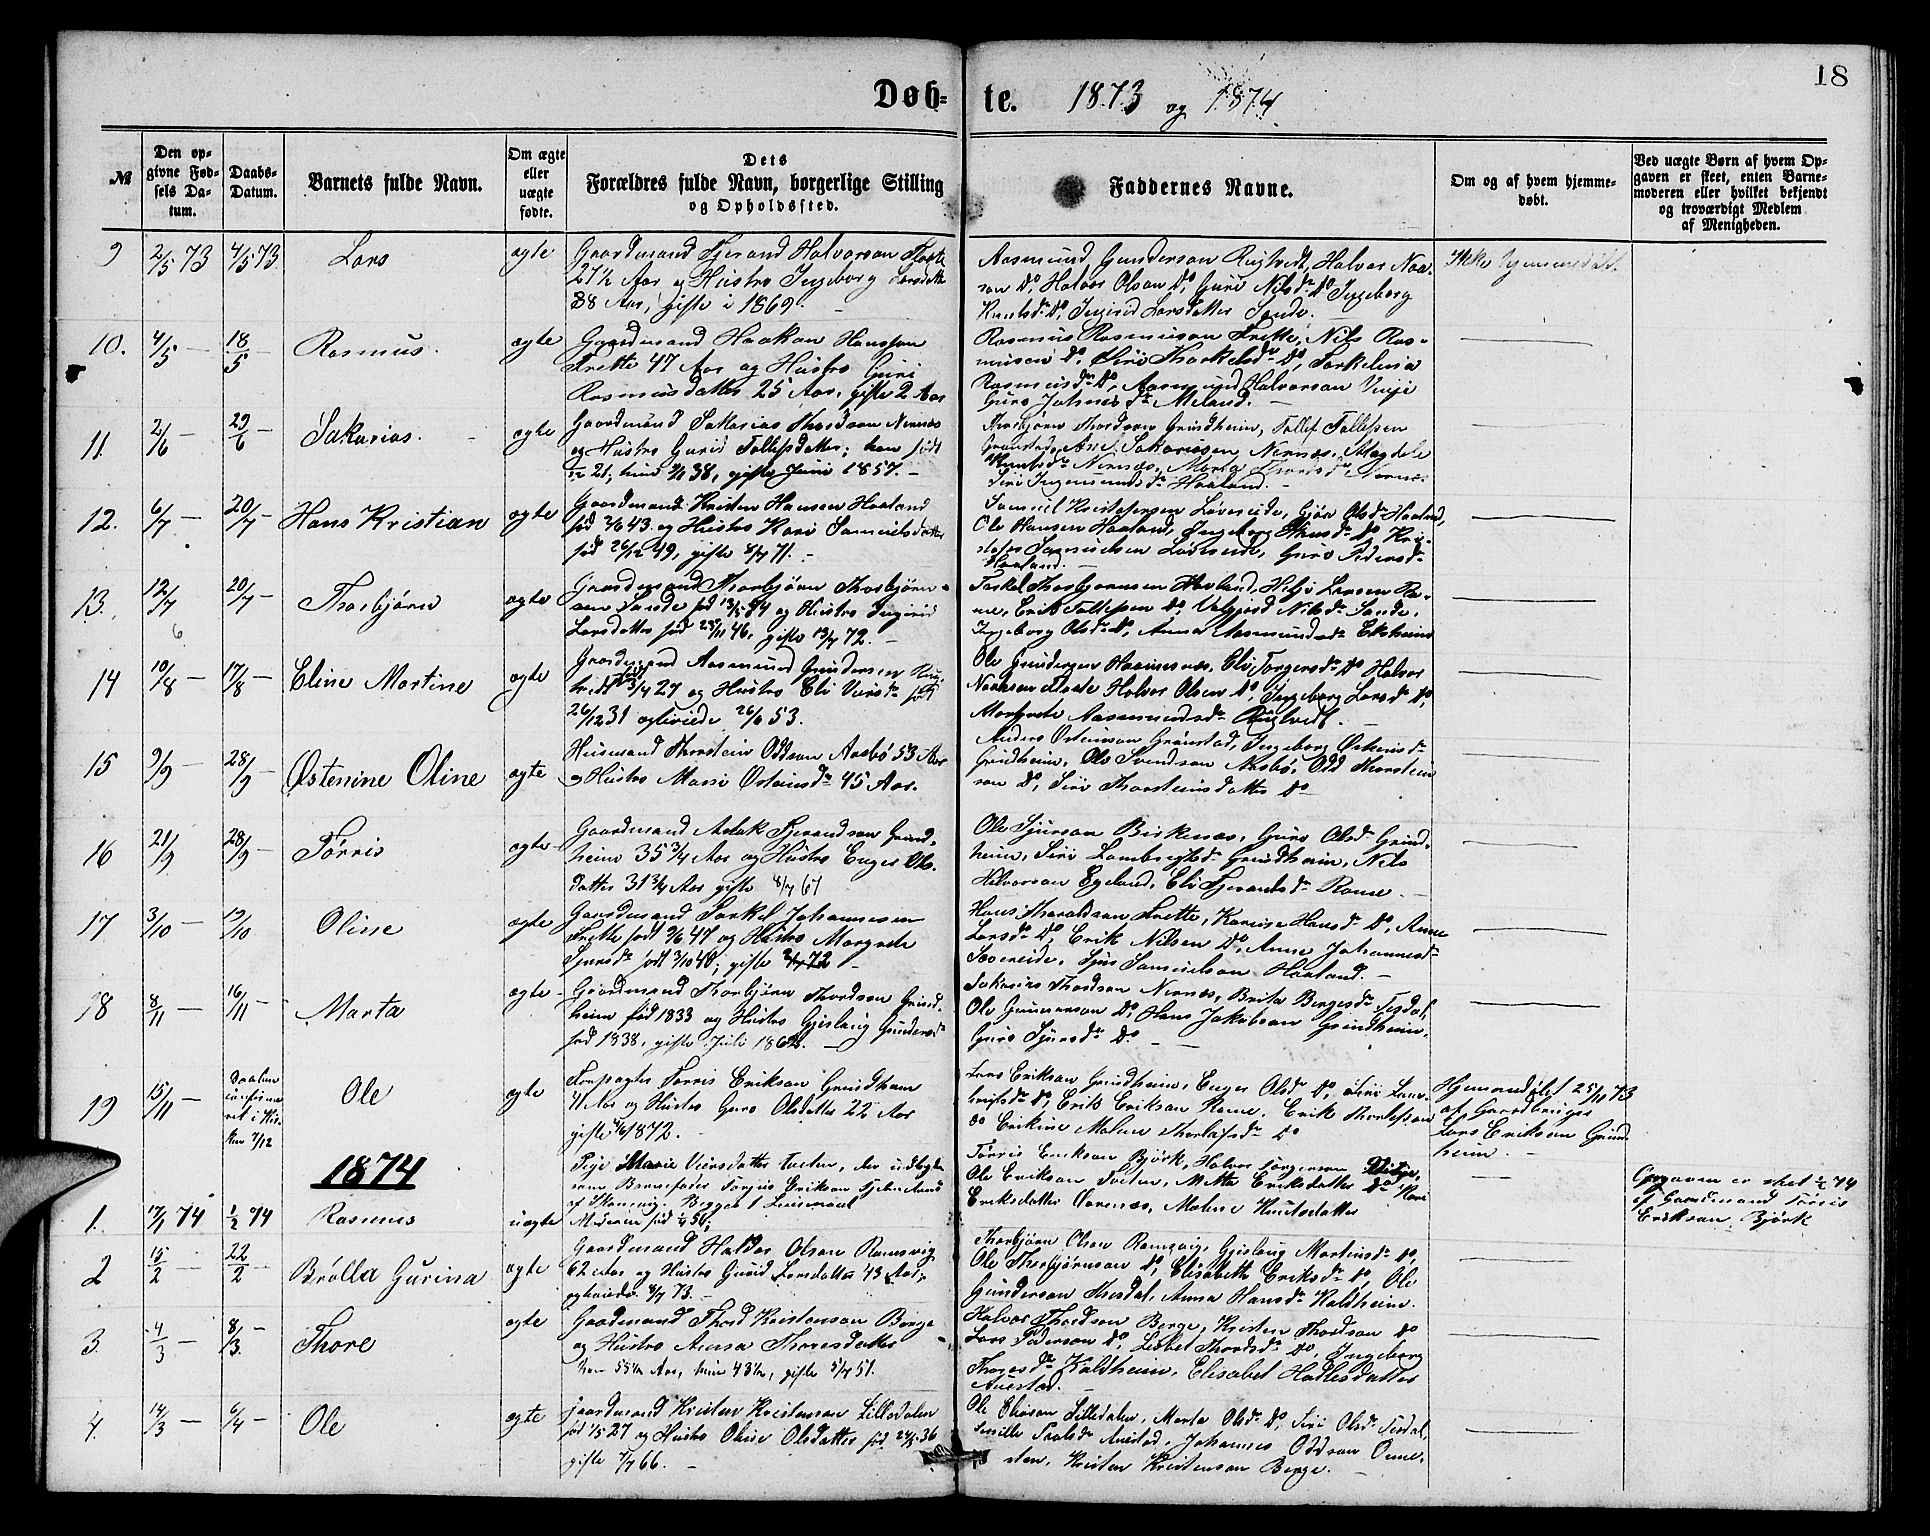 18
Døb-te. 1873 og 1874
№
Den opgivne Fødsels Datum.
Daabs-Datum.
Barnets fulde Navn.
Om ægte eller uægte fødte.
Dets Forældres fulde Navn, borgerlige Stilling og Opholdssted.
Faddernes Navne.
Om og af hvem hjemmedøbt.
Ved uægte Børn af hvem Opgaven er skeet, enten Barnemoderen eller hvilket bekjendt og troværdigt Medlem af Menigheden.
9 2/5 73 4/5 73 Lars ægte
Gaardmand Tjerand Halvorsen
27½ Aar og Hustru Ingeborg Larsdatter
38 Aar, gifte i 1869.
Aasmund Gundersen Hugtvedt, Halvor
Do, Halvor Olsen Do, Guri Nilsdr Do Ingeborg
Knutsdr Do, Ingrid Larsdatter Sande.
Ikke hjemmedøbt
10. 4/5 — 18/5 — Rasmus. ægte
Gaardmand Haakon Hansson
Frette 47 Aar og Hustru Guri
Rasmusdatter 25 Aar, gifte 2 Aar
Rasmus Rasmusson Frette, Nils Ras-
musen Do, Siri Thorkelsdr Do, Torkelina
Rasmusdr Do, Aasmund Halvorsen Vinje
Guro Johnesdr Meland.
11. 2/6 29/6 Sakarias. ægte
Gaardmand Sakarias Thordson Nernæs
og Hustru Gurid Tollefsdatter; han født
21, hun 38, gifte Juni 1857.
Thorbjørn Thordsen Grindheim, Tollef Tollefsen
Grønstad, Sakariassen Nernæs, Magdele
Knutsdr Nernæs, Marta Thordsdr Nernæs
Siri Ingemundsdr Haaland.
12. 6/7 — 20/7 — Hans Kristian ægte
Gaardmand Kristen Hansen Haaland
fød 43 og Hustru Kari Samuelsdatter
fød 26/12 49, gifte 8/7 71.
Samuel Kristofersen Løvereide, Gjøa Olsdr Haaland,
Ole Hansen Haaland, Ingeborg Hansdr Do Kri-
stofer Samuelsen Løvereide, Guro Pedersdr
Haaland.
13. 12/7 20/7 — Thorbjørn ægte
6
Gaardmand Thorbjørn Thorbjørn-
sen Sande fød 13/5 34 og Hustru Ingrid
Larsdatter fød 23/11 46, gifte 13/7 72.
Torkel Thorbjørnsen Haaland, Helje Larsen Ra-
me, Erik Tollefsen Do, Valgjerd Nilsdr Sande,
Ingeborg Olsdr Do, Anna Aasmundsdr Ekeheim
14 10/8 — 17/8 — Eline Martine ægte
Gaardmand Aasmund Gundersen
27 og Hustru Eli født
26/12 31 og 26/6 53.
Ole Gundersen Haaimsnæs, Eli Torgersdr Do Halvor
Halvor Olsen Do, Ingeborg Larsdr Do,
Margrete Aasmundsdr
15 9/9 — 28/9 — Østenine Oline ægte
Husmand Thorstein Oddson Aasbø 53 Aar
og Hustru Massi Østensdr 45 Aar.
Anders Osteinson Grønstad, Ingeborg Ostensdr
Grindheim, Ole Svendson Aasbø, Odd Thorstein
son Do, Siri Thorsteinsdatter Do
16 21/9 28/9 — Tørris ægte
Gaardmand Aslak Tjerandson Grind-
heim 35¾ Aar og Hustru Enger Ols-
datter 31¾ Aar gifte 8/7 67
Ole Sjurson Birkenæs, Guro Olsdr Grind-
heim, Siri Lambregtsdr Grindheim, Nils
Halvorson Egeland, Eli Tjerandsdr Rame.
17 3/10 — 19/10 Oline ægte
Gaardmand Torkel Johannesen
Frette født 47 og Hustru Margrete
Sjursdr født 3/10 48; gifte 72
Hans Tharaldson Frette, Karine Hansdr Do, Anne
Larsdr Do, Erik Nilsen Do, Anne Johannesdr
Søvereide, Sjur Samuelson Haaland.
18 8/11 — 16/11 — Marta ægte
Gaardmand Thorbjørn Thordson Grind-
heim fød 1833 og Hustru Gjislaug Gundersdr
fød 1838, gifte Juli 1862.
Sakarias Thordson Nernæs, Brita Bergesdr Tesdal,
Ole Gunnarson Do, Hans Jakobson Grindheim,
Guro Sjursdr Do
19 15/11 — Ole ægte
Daaben confirmeret i Kirken 7/12
Forpagter Tørris Erikson Grindheim
Aar og Hustru Guro Olsdatter 22 Aar
gifte 1872.
Lars Erikson Grindheim, Enger Olsdr Do, Siri Lam-
bregtsdr Do, Erik Erikson Rame, Erik Thorlefsson
Do Erikine Malene Thorlafsdr Do
Hjemmedøbt 25/11 73
af Gaardbruger
Lars Erikson Grind
heim.
1874
1. 17/1 74 1/2 74 Rasmus uægte
Pige Marie Viersdatter, der udlagde
som Barnefader Torjus Erikson Fjelmeland
af Skonevig. Begges 1 Leiermaal
Moderen fød
Tørris Erikson Bjørk, Halvor Torgersen
Ole Erikson Mette Eriksdatter Do Kari
Eriksdatter Malene Knutsdatter
Opgaven er skeet 74
af Gaardmand Tørris
Erikson Bjørk
2 15/2 — 22/2 — Brølla Gurina ægte
Gaardmand Haldor Olson Ramsvig
62 Aar og Hustru Gurid Larsdatter 43 Aar,
73.
Thorbjørn Olson Ramsvig, Gjislaug Martinsdr Do,
Ole Thorbjørnson Do, Elisabeth Eriksdr Do, Ole
Gunderson Thesdal, Anna Hansdr Kaldheim.
3. 4/3 — 8/3 — Thore ægte
Gaadmand Thord Kristenson Berge
og Hustru Anna Thoresdatter
han 55 Aar, hun 43, gifte 5/7 51.
Halvor Thordson Berge, Kristen Thordson Do
Lars Pederson Do, Lisbet Thordsdr Do, Ingeborg
Thoresdr Kaldheim, Elisabet Hadlesdatter
Auestad.
4. 14/3 — 6/4 — Ole ægte
gaardmand Kristen Kristenson Lilledalen
fød 27 og Hustru Oline Olsdatter fød 36
gifte 7/7 66.
Ole Olsen Lilledalen, Marta Olsdr Do, Siri Olsdr Tesdal,
Auestad, Johannes Oddson
Kristen Kristenson Berge.